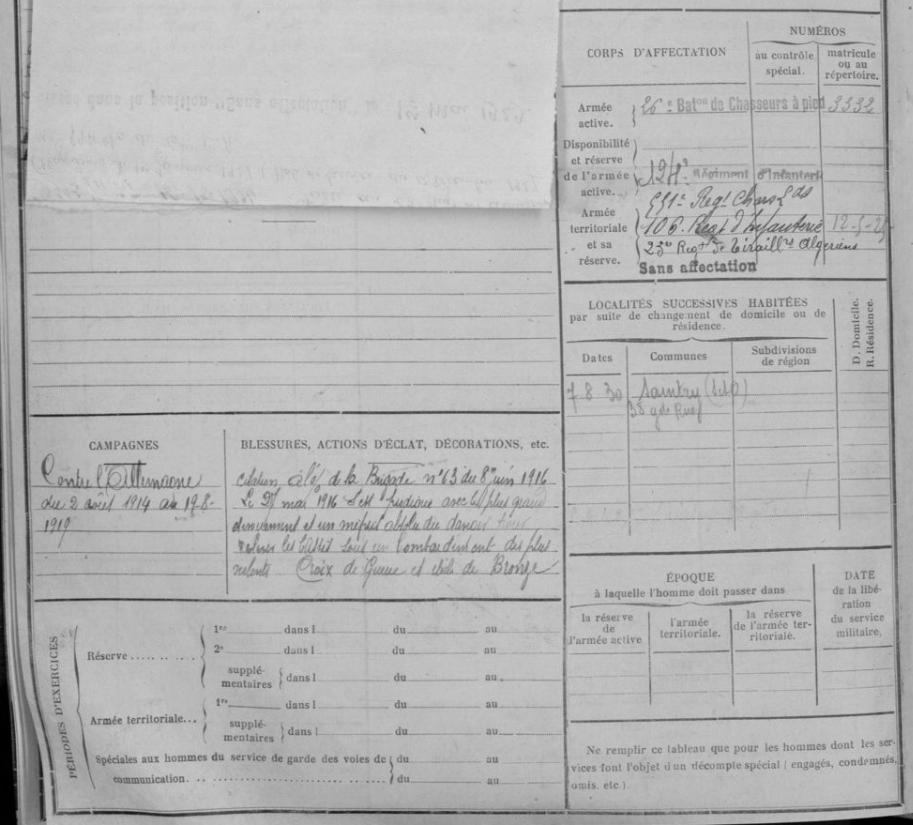 NUMÉROS
CORPS D'AFFECTATION
au contrôle spécial.
matricule ou au répertoire.
Armée active.
26e Baton de Chasseurs à pied 3332
Disponibilité et réserve de l'armée active.
Régiment d'Infanterie
Regt Chars
Armée territoriale et sa réserve.
106. Regt d'Infanterie 12-5-
23e Regt de Tiraillrs Algeriens
Sans affectation
LOCALITÉS SUCCESSIVES HABITÉES
par suite de changement de domicile ou de
résidence.
Dates
Communes
Subdivisions de région
D. Domicile.
R. Résidence.
7.8.30 Saintry (S&O)
38 gde Rue
CAMPAGNES
Contre l'Allemagne
du 2 août 1914 au 19-8-
1919
BLESSURES, ACTIONS D'ÉCLAT, DÉCORATIONS, etc.
citation de la Brigade n°63 du 8 juin 1916
Le mai 1916 s'est avec le plus grand
et un mépris absolu du danger
les sous un bombardement des plus
violents Croix de Guerre et étoile de Bronze
ÉPOQUE
à laquelle l'homme doit passer dans
la réserve de l'armée active
l'armée territoriale.
la réserve de l'armée territoriale.
DATE
de la libération
du service
militaire.
PÉRIODES D'EXERCICES
Réserve
1re dans l du au
2e dans l du au
supplémentaires dans l du au
Armée territoriale...
1re dans l du au
supplémentaires dans l du au
Spéciales aux hommes du service de garde des voies de du au
communication. du au
Ne remplir ce tableau que pour les hommes dont les ser-
vices font l'objet d'un décompte spécial ( engagés, condamnés,
omis. etc.).